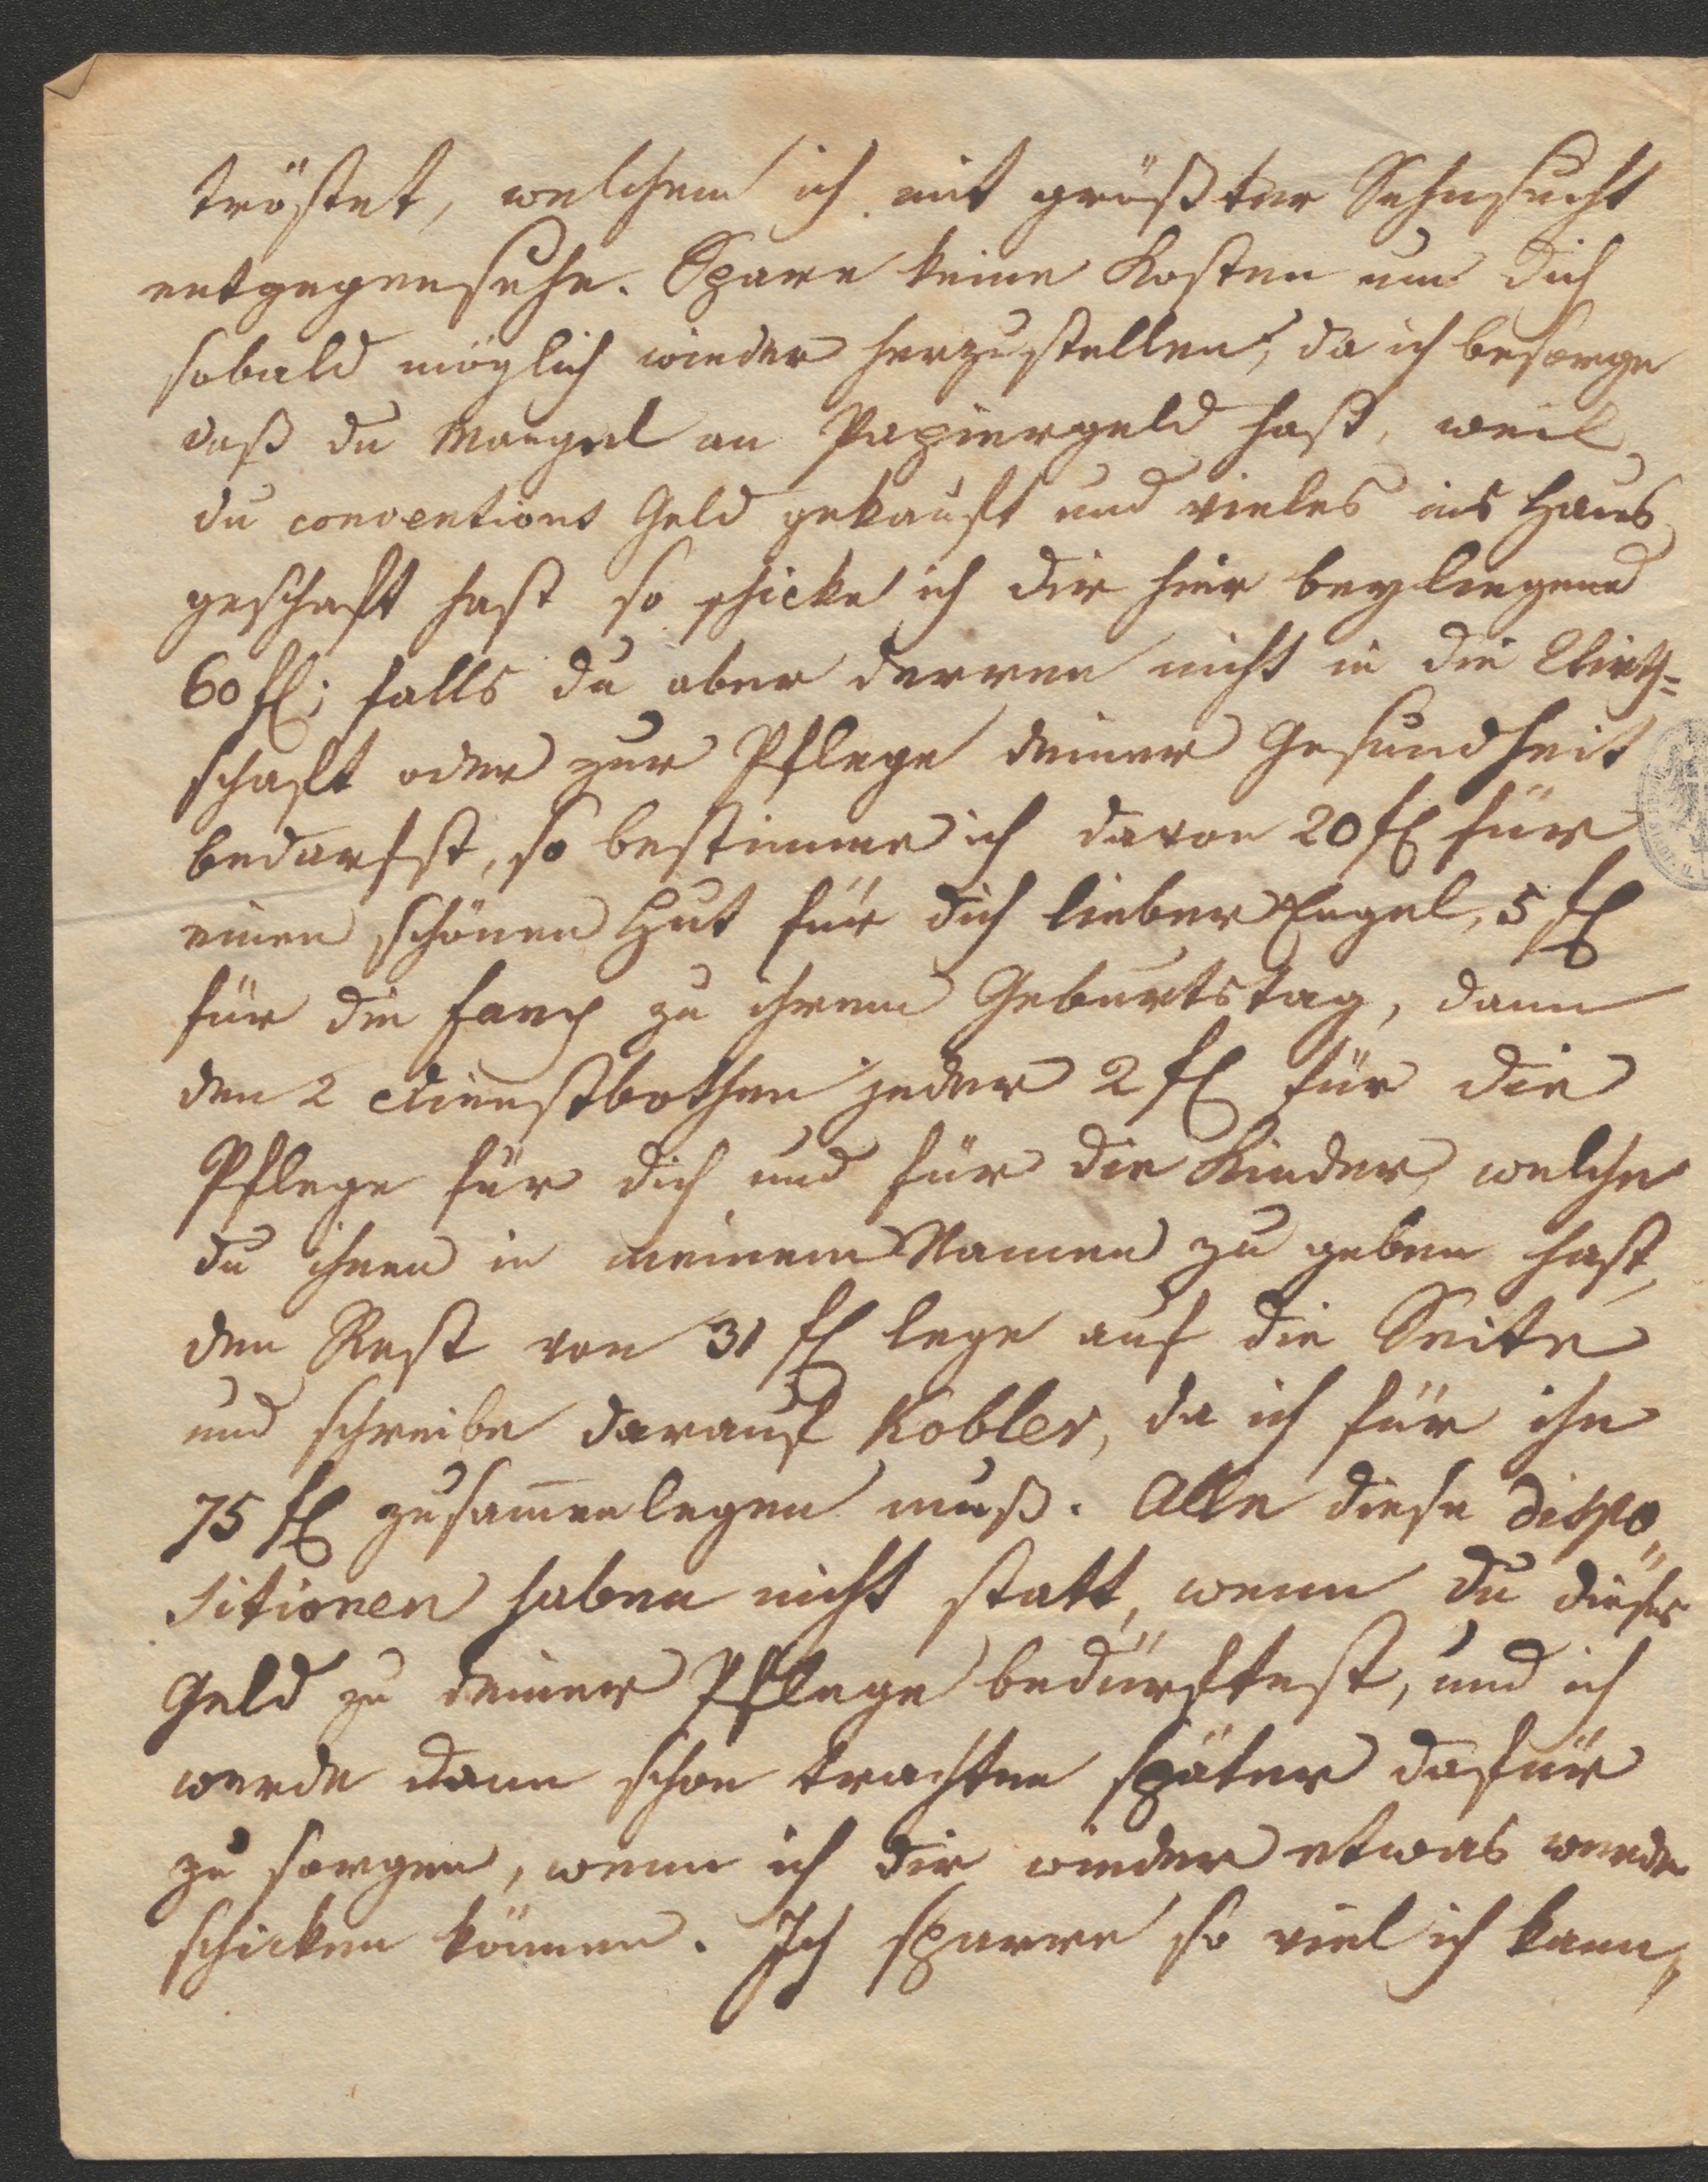 tröstet, welchem ich mit größter Sehnsucht
entgegensehe. Spare keine Kosten um dich
sobald möglich wieder herzustellen; da ich besorge
daß du Mangel an Papiergeld hast, weil
du conventions Geld gekauft und vieles ins Haus
geschaft hast so schicke ich dir hier beyliegend
60 fl; falls du aber derren nicht in die Wirth=
schaft oder zur Pflege deiner Gesundheit
bedarfst, so bestimme ich davon 20 fl für
einen schönen Hut für dich lieber Engel, 5 fl
für die Fany zu ihrem Geburtstag, dann
den 2 Dienstbothen jeder 2 fl für die
Pflege für dich und für die Kinder, welche
du ihnen in meinem Namen zu geben hast,
den Rest von 31 fl lege auf die Seite
und schreibe darauf Kobler, da ich für ihn
75 fl zusam̅enlegen muß. Alle diese dispo„
sitionen haben nicht statt, wenn du dieses
Geld zu deiner Pflege bedürftest, und ich
werde dann schon trachten später dafür
zu sorgen, wenn ich dir wieder etwas werde
schicken können. Ich sparre so viel ich kann,